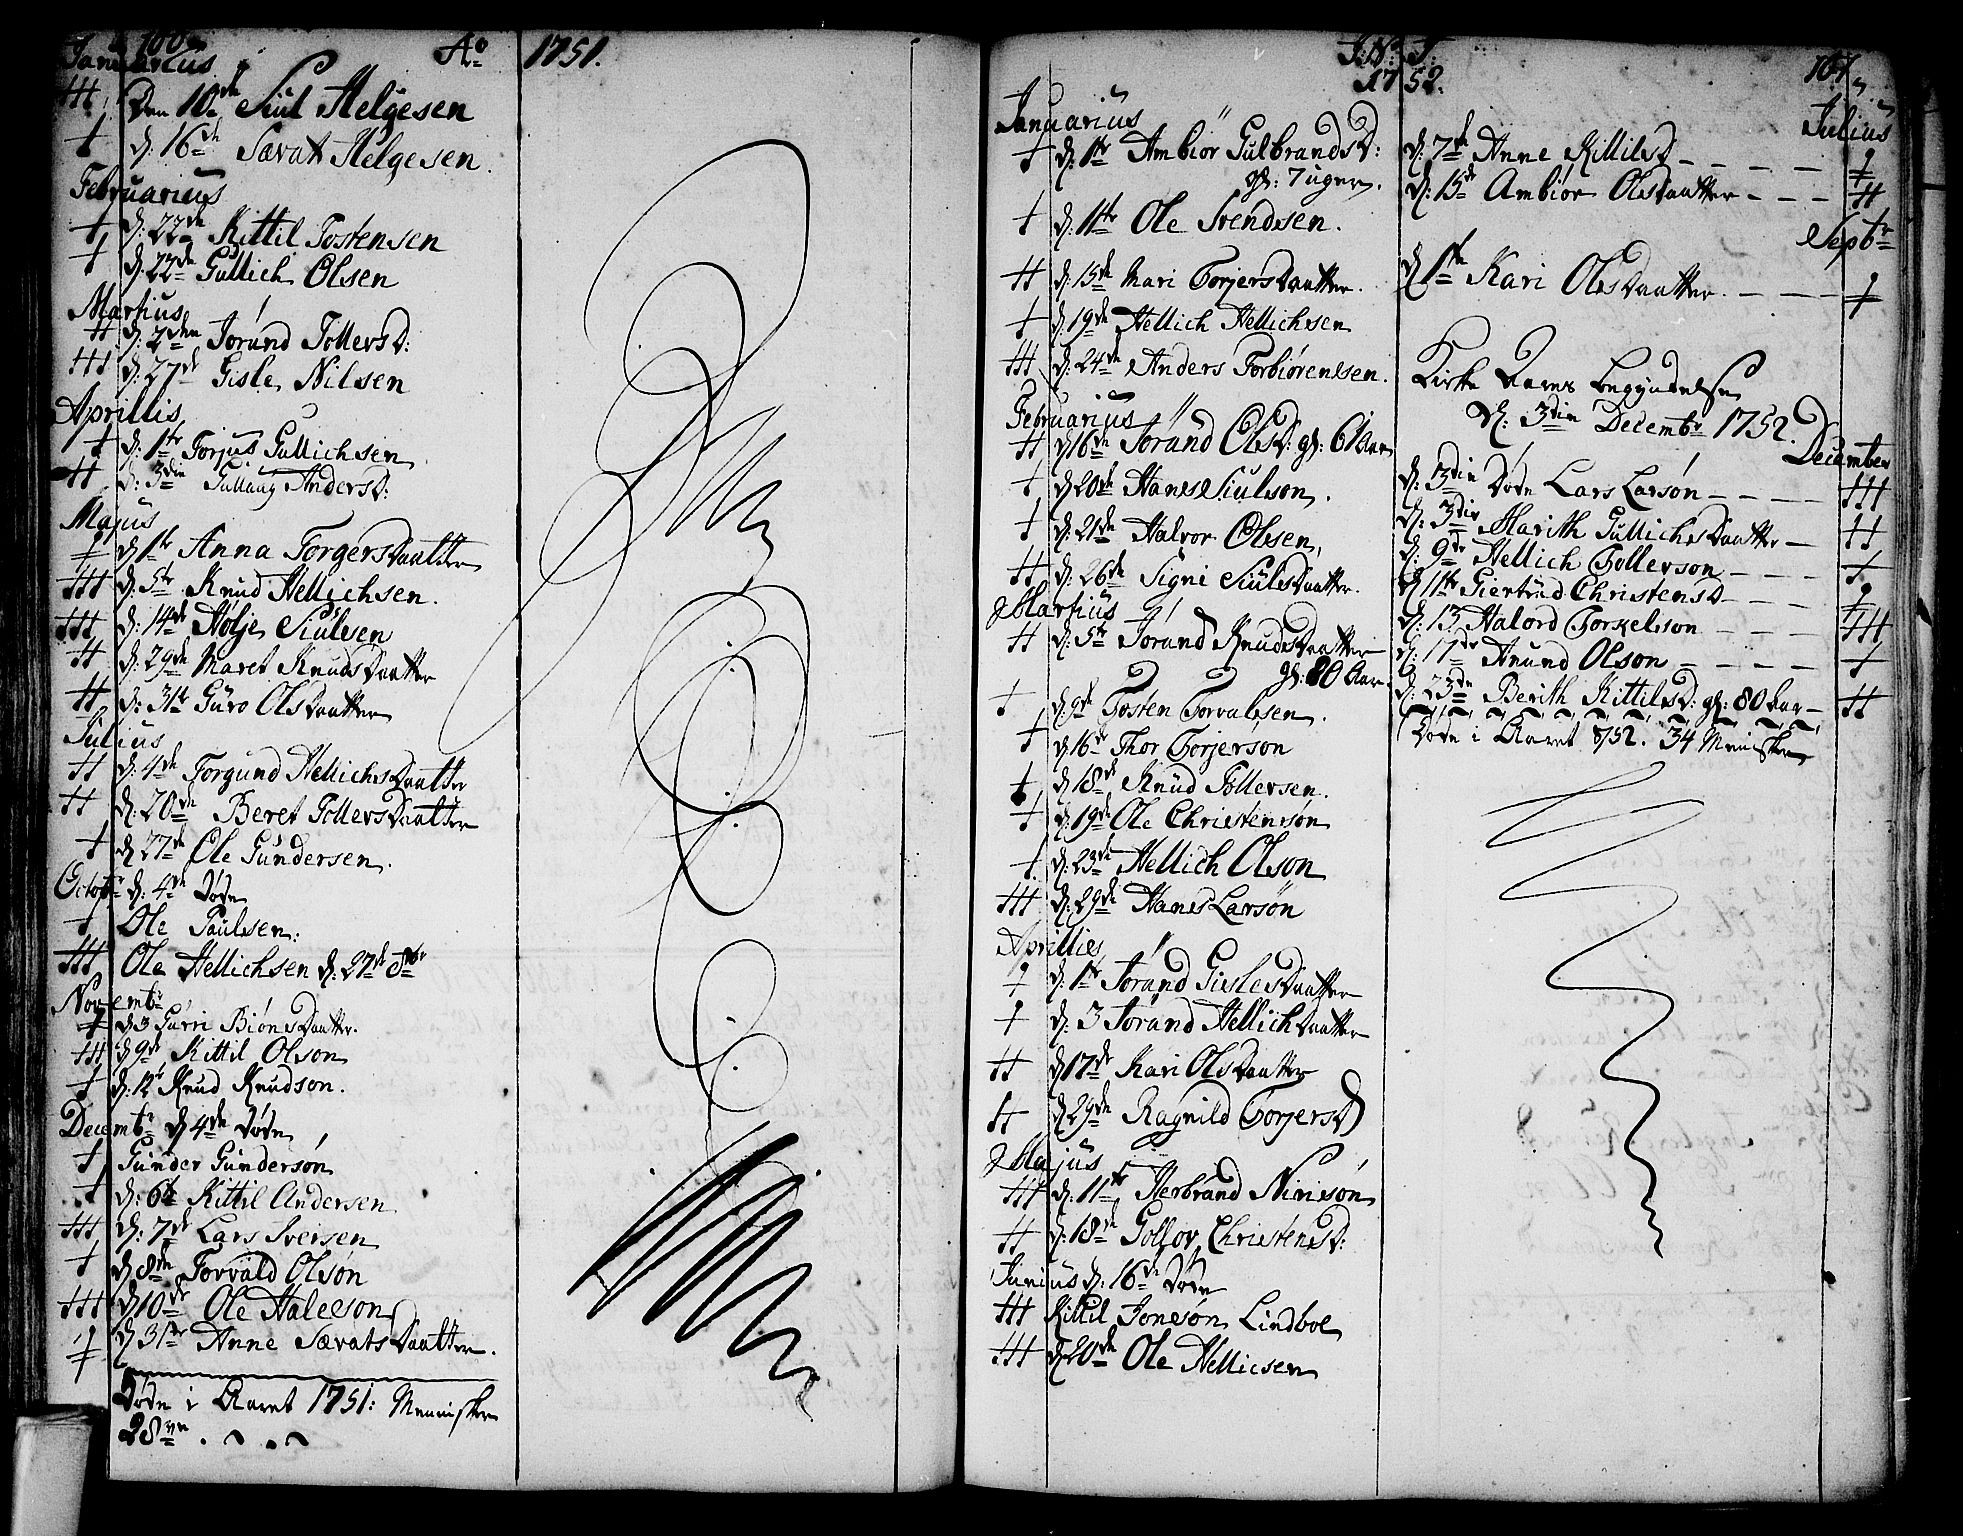 100
Januarius Ao 1751.
Den 10de Siul Helgesen
d: 16de Sævat Helgesen.
Februarius
d: 22de Kittil Tostensen
d: 22de Gullich Olsen
Martius
d: 2den Jorund TollersD:
d: 27de Gisle Nilsen
Aprillis
d: 1te Torjus Gullichsen
d: 3die Gullaug AndersD:
Majus
d: 1te Anna TorgersDaatter
d: 5te Knud Hellichsen.
d: 14de Hølje Siulesen
d: 29de Maret KnudsDaatter
d: 31te Guro OlsDaatter
Julius
d: 4de Torgund HellichsDaatter
d: 20de Beret TollersDaatter
d: 27de Ole Gundersen.
Octobr d: 4de Døde
Ole Paulsen:
Ole Hellichsen d: 27de 8br
Novembr
d 3 Gurri BiønsDaatter.
d 9de Kittil Olson
d: 12te Knud Knudson.
Decembr d 4de Døde
Gunder Gundersøn
d: 6te Kittil Andersen
d: 7de Lars Sversen
d 8de Torvald Olsøn
d 10de Ole Haleeson
d 31te Anne SævatsDaatter.
Døde i Aaret 1751: Mennisker
28ve
J: N: J:
1752.
101
Januarius
d: 1te Ambiør GulbrandsD:
gl: 7 uger.
d: 11te Ole Svendsen.
d: 15de Mari TorjersDaatter.
d: 19de Hellich Hellichsen
d: 24de Anders Torbiørensen.
Februarius
d 16de Jorand OlsD: gl: 61 Aar
d 20de Hans Siulson.
d: 21de Halvor Olsen,
d: 26de Signi SiulsDaatter.
Martius
d: 5te Jorand KnudsDaatter
gl: 80 Aar.
d: 9de Tosten Torvalsen.
d 16de Thor Torjerson
d 18de Knud Tollersen.
d: 19de Ole Christensøn
d: 23de Hellich Olson
d: 29de Hans Larsøn
Aprillies
d: 1te Jorand GislesDaatter
d: 3 Jorand HellichDaatter
d 17de Kari OlsDaatter
d 29de Ragnild TorjersD
Majus
d: 11te Herbrand Nirisøn
d: 18de Golfov ChristensD:
Junius d: 16de Døde
Kittil Jonsøn Lindboe
d 20de Ole Hellicsen
Julius
d: 7de Anne KittilsD
d: 15de Ambiør OlsDaatter
Septbr
d 1te Kari OlesDaatter.
Kirke Aarets Begyndelse
d: 3die Decembr 1752.
December
d: 3die Døde Lars Larsøn
d: 3die Marith GullichsDaatter
d: 9de Hellich Tollerson
d 11te Giertrud ChristensD
d: 13 Halord Torkelson
d: 17de Anund Olson
d: 23de Berith KittilsD: gl: 80 Aar
Døde i Aaret 1752. 34 Mennisker